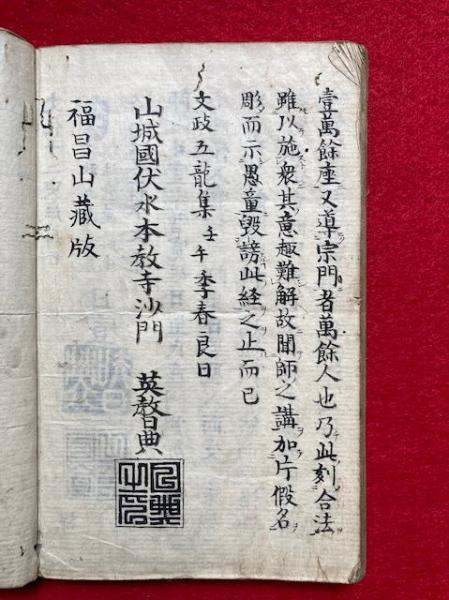 壹萬餘座又導宗門者萬餘人也乃此刻合法
雖以施衆其意趣難解故聞師之講加片假名
彫而示愚童毀謗此経之止而已
文政五龍集壬午季春良日
山城國伏水本教寺沙門 英智日典
福昌山藏版